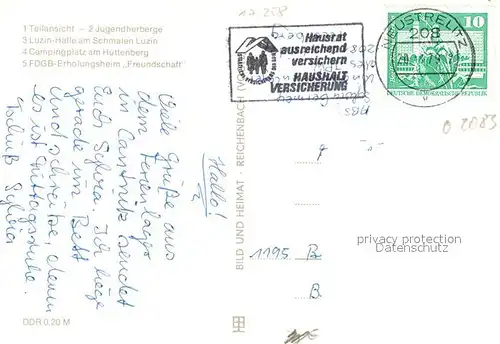 1 Teilansicht – 2 Jugendherberge
3 Luzin-Halle am Schmalen Luzin
4 Campingplatz am Hüttenberg
5 FDGB-Erholungsheim „Freundschaft"
Hallo!
Viele Grüße aus
dem Ferienlager
in Cantnitz sendet
Euch Sylvia. Ich liege
gerade im Bett
und schreibe, denn
es ist Mittagsruhe.
Tschüß Sylvia
DDR 0,20 M
BILD UND HEIMAT · REICHENBACH (V
Hausrat
ausreichend
versichern
HAUSHALT
VERSICHERUNG
NEUSTRELITZ
208
10
DEUTSCHE DEMOKRATISCHE REPUBLIK
1195 B
B
privacy protection
Datenschutz